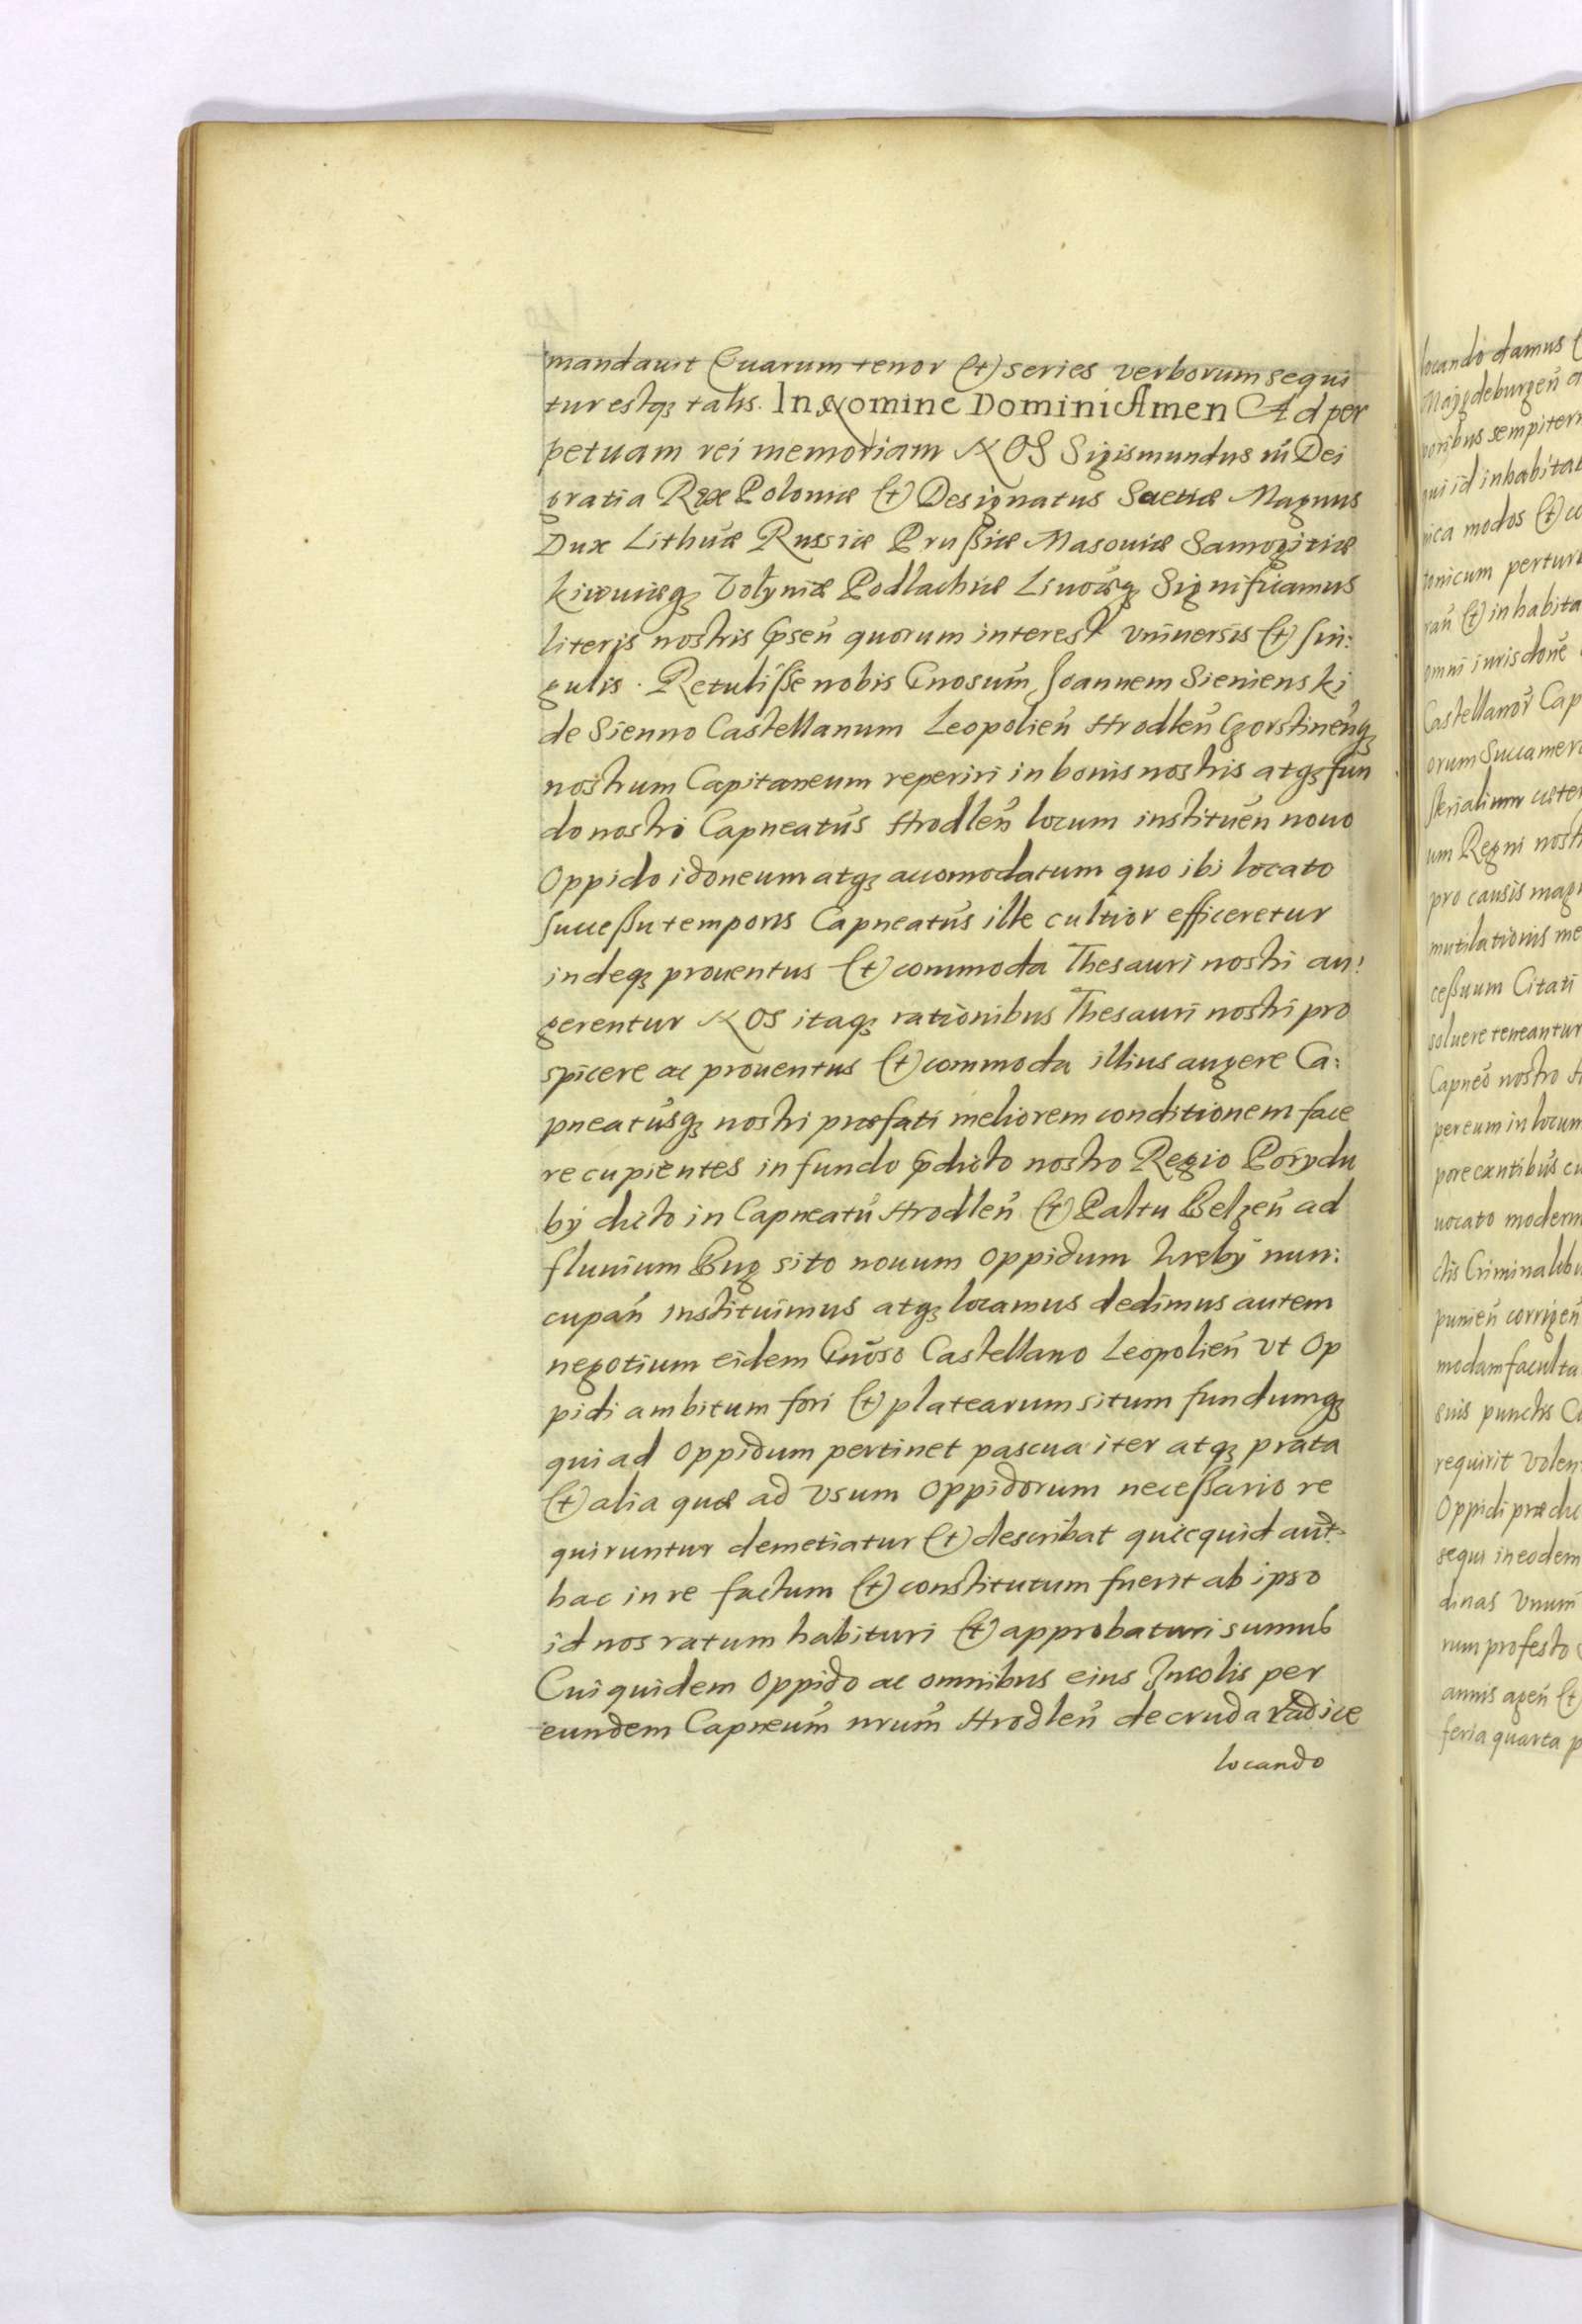 mandauit Quarum tenor (et) series verborum sequi
tur estq; talis. In Nomine Domini Amen Ad per
petuam rei memoriam NOS Sigismundus iii Dei
gratia Rex Poloniæ (et) Designatus Suetiæ Magnus
Dux Lithuæ Russiæ Prußiæ Masouiæ Samogitiæ
kiiouiæq; Volyniæ Podlachiæ Liuoæq; Significamus
literis nostris p̃señ quorum interest vniuersis (et) sin:
gulis. Retulisse nobis Gnosum̃ Joannem Sienienski
de Sienno Castellanum Leopolień Hrodleń Czorstineńq;
nostrum Capitaneum reperiri in bonis nostris atq; fun
do nostro Capneatus̃ Hrodleń locum instituen̄ nouo
Oppido idoneum atq; accomodatum quo ibi locato
successu temporis Capneatus̃ ille cultior efficeretur
indeq; prouentus (et) commoda Thesauri nostri au:
gerentur NOS itaq; rationibus Thesauri nostri pro
spicere ac prouentus (et) commoda illius augere Ca:
pneatus̃q; nostri præfati meliorem conditionem face
re cupientes in fundo p̃dicto nostro Regio Porydu
bÿ dicto in Capneatũ Hrodleń (et) Paltu Belzeń ad
fluuium Bug sito nouum Oppidum hreby nun:
cupań instituimus atq; locamus dedimus autem
negotium eidem Gnõso Castellano Leopolień vt Op
pidi ambitum fori (et) platearum situm fundumq;
qui ad Oppidum pertinet pascua iter atq; prata
(et) alia quæ ad vsum Oppidorum necessario re
quiruntur demetiatur (et) describat quicquid aut̃
hac in re factum (et) constitutum fuerit ab ipso
id nos ratum habituri (et) approbaturi sumus
Cui quidem Oppido ac omnibus eius Incolis per
eundem Capneum̃ nrum̃ Hrodleń de cruda radice
locando
locando damus (
Maydeburgeń a
poribus sempitern
qui id inhabitat
nica modos (et) co
tonicum perturb
rań (et) inhabita
omni iurisdone
Castellanor̃ Cap
orum Succamer
um Regni nostr
pro causis magn
mutilationis me
ceßuum Citati
soluere teneantur
Capneõ nostro H
per eum in locum
pore cantibus cu
uocato modern
ctis Criminalibu
punień corrigeń
modam faculta
suis punctis C
requirit Volen
Oppidi prædic
sequi in eodem
dinas Vnum
rum profesto
annis ageń (et)
feria quarta p